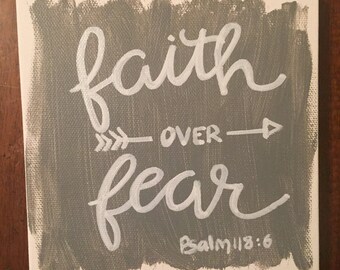 faith
OVER
fear
Psalm 118:6